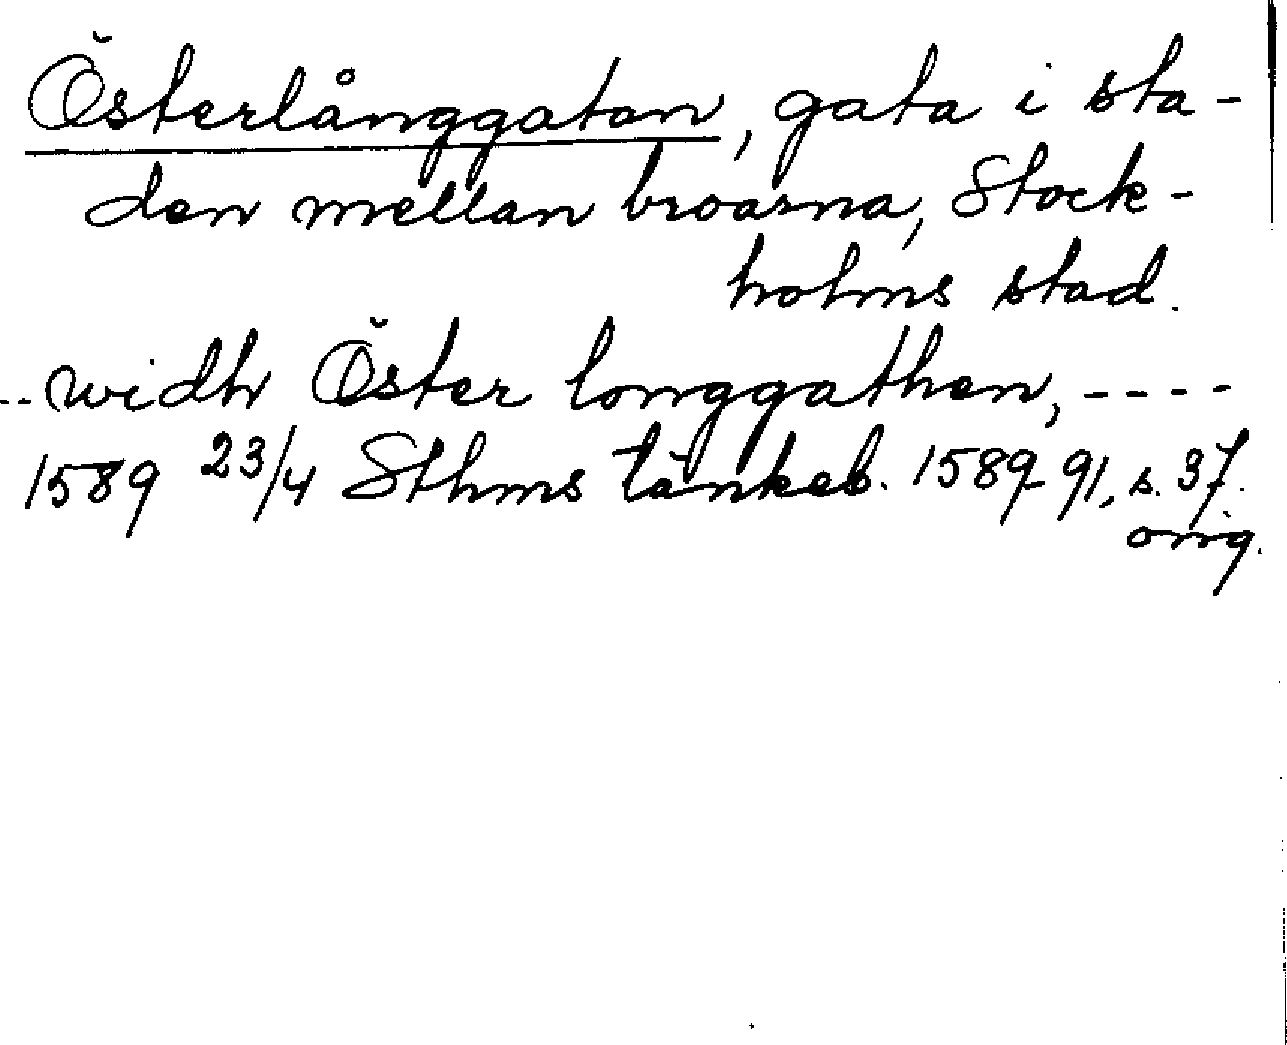 Österlånggatan, gata i sta-
den mellan broarna, Stock-
holms stad.
-- widh Öster longgathen, ----
1589 23/4 Sthms tänkeb. 1589-91, s. 37.
orig.